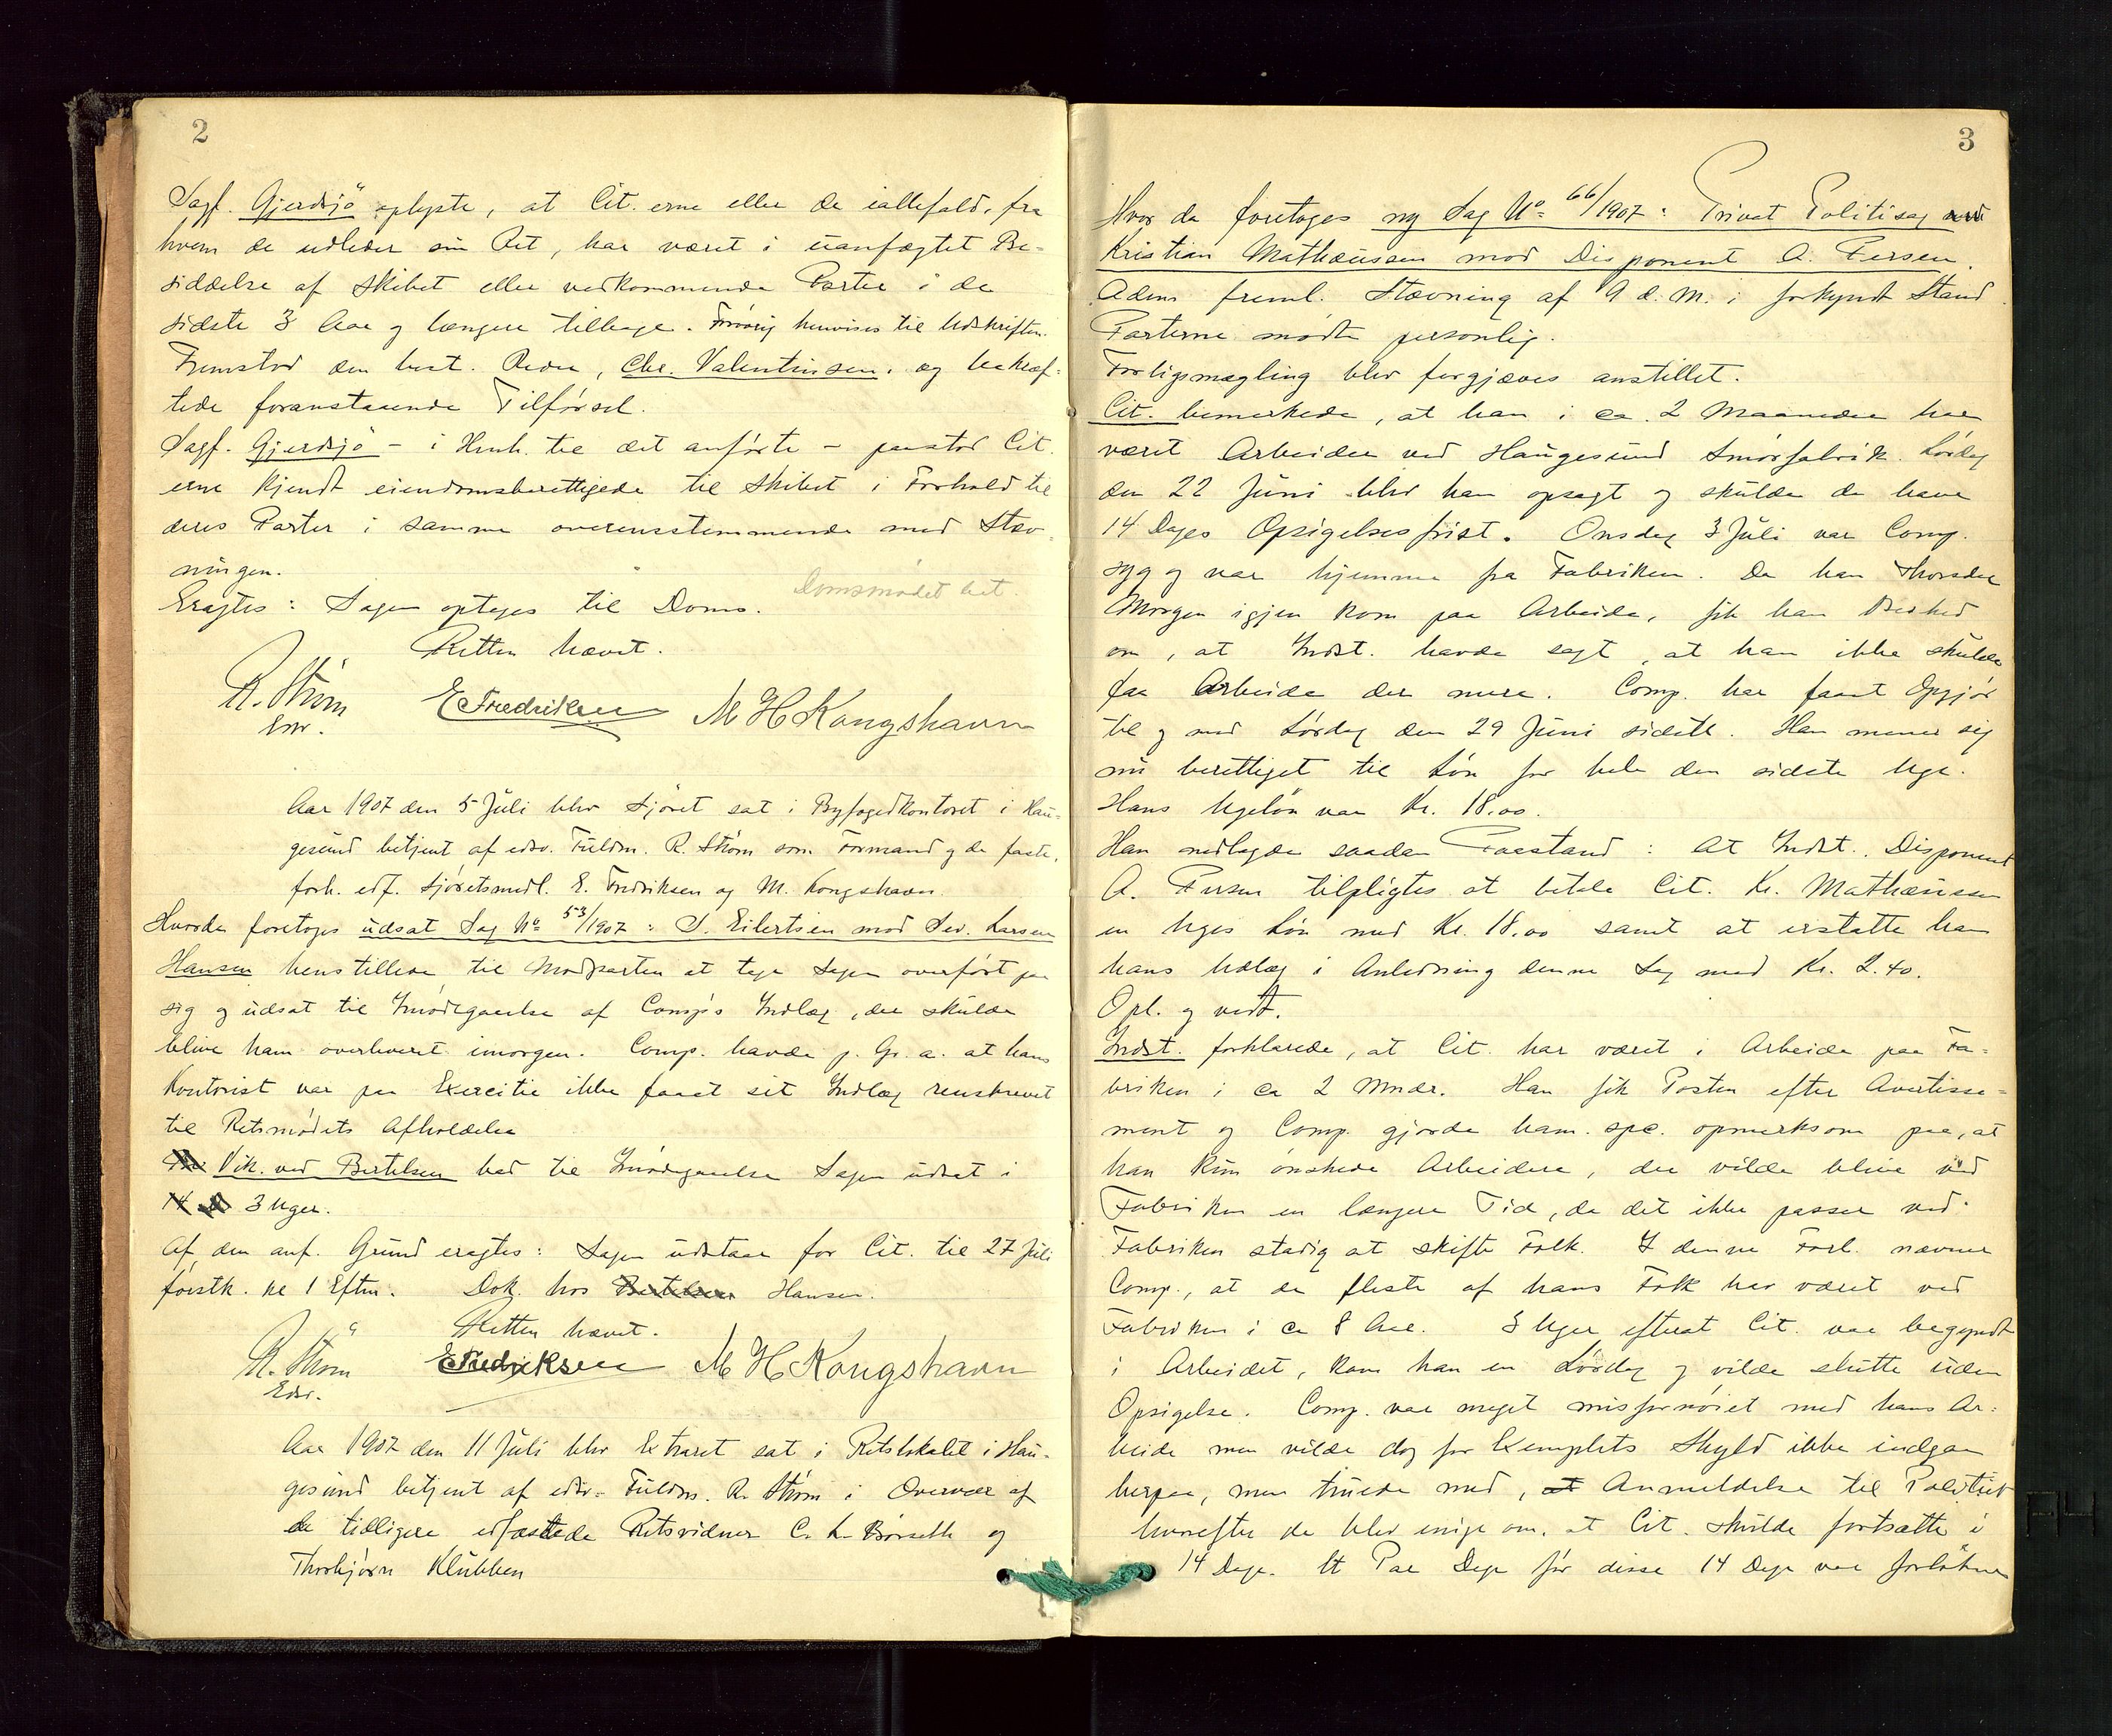 2
Sagf. Gjerdsjö oplyste, at Cit. erne eller de iallefald, fra
hvem de udleder sin Ret, har været i uanfægtet Be-
siddelse af Skibet eller vedkommende Parter i de
sidste 3 Aar og længere tilbage. Forøvrig henvises til Udskriften.
Fremstod den best. Reder, Chr. Valentinsen, og bekræf-
tede foranstaaende Tilførsel.
Sagf. Gjerdsjö - i Henh. til det anførte - paastod Cit.
erne kjendt eiendomsberettigede til Skibet i Forhold til
deres Parter i samme overensstemmende med Stæv-
ningen.
Domsmødet
Eragtes: Sagen optages til Doms.
Retten hævet.
R. Strøm E Fredriksen M H Kongshavn
Edsv.
Aar 1907 den 5 Juli blev Sjöret sat i Byfogedkontoret i Hau-
gesund betjent af edsv. Fuldm. R. Strøm som Formand og de faste,
forh. edf. Sjöretsmedl. E. Fredriksen og M. Kongshavn.
Hvorda foretoges udsat Sag No 53/1907: S. Eilertsen mod Sev. Larsen
Hansen henstillede til Modparten at tage Sagen overført paa
sig og udsat til Imødegaaelse af Comp's Indlæg, der skulde
blive ham overleveret imorgen. Comp. havde p. Gr. a. at hans
Kontorist var paa Exercitie ikke faaet sit Indlæg renskrevet
til Retsmødets Afholdelse
Vik. ved Bertelsen bad til Imødegaaelse Sagen udsat i
3 Uger.
Af den anf. Grund eragtes: Sagen udstaar for Cit. til 27 Juli
førstk. kl 1 Eftm. Dok. hos Bertelsen Hansen.
Retten hævet.
R. Strøm E Fredriksen M H Kongshavn
Edsv.
Aar 1907 den 11 Juli blev Extraret sat i Retslokalet i Hau-
gesund betjent af edsv. Fuldm. R. Strøm i Overvær af
de tidligere edfæstede Retsvidner C. L. Børseth og
Thorbjørn Klubben
3
Hvor da foretoges ny Sag No 66/1907: Privat Politisag
Kristian Mathæussen mod Disponent A. Fersen.
Adem freml. Stævning af 9 d. M. i forkyndt Stand
Parterne mødte personlig.
Forligsmægling blev forgjæves anstillet.
Cit. bemerkede, at han i ca 2 Maaneder har
været Arbeider ved Haugesund Smørfabrik. Lørdag
den 22 Juni blev han opsagt og skulde da have
14 Dages Opsigelsesfrist. Onsdag 3 Juli var Comp.
syg og var hjemme fra Fabriken. Da han Thorsdag
Morgen igjen kom paa Arbeide, fik han Besked
om, at Indst. havde sagt, at han ikke skulde
faa Arbeide der mere. Comp. har faaet Opgjør
til og med Lørdag den 29 Juni sidstl. Han mener sig
nu berettiget til Løn for hele den sidste Uge.
Hans Ugeløn var Kr. 18.00.
Han nedlagde saadan Paastand: At Indst. Disponent
A. Fersen tilpligtes at betale Cit. Kr. Mathæussen
en Uges Løn med Kr. 18.00 samt at erstatte ham
hans Udlæg i Anledning denne Sag med Kr. 2.40.
Opl. og vedt.
Indst. forklarede, at Cit. har været i Arbeide paa Fa-
briken i ca 2 Mndr. Han fik Posten efter Avertisse-
ment og Comp. gjorde ham spec. opmerksom paa, at
han kun ønskede Arbeidere, der vilde blive ved
Fabriken en længere Tid, da det ikke passer ved
Fabriken stadig at skifte Folk. I denne Forb. nævner
Comp., at de fleste af hans Folk har været ved
Fabriken i ca 8 Aar. 3 Uger efterat Cit. var begyndt
i Arbeidet, kom han en Lørdag og vilde slutte uden
Opsigelse. Comp. var meget misfornøiet med hans Ar-
beide men vilde dog for Exemplets Skyld ikke indgaa
herpaa, men truede med, at Anmeldelse til Politiet
hvorefter de blev enige om, at Cit. skulde fortsætte i
14 Dage. Et Par Dage før disse 14 Dage var forløbne